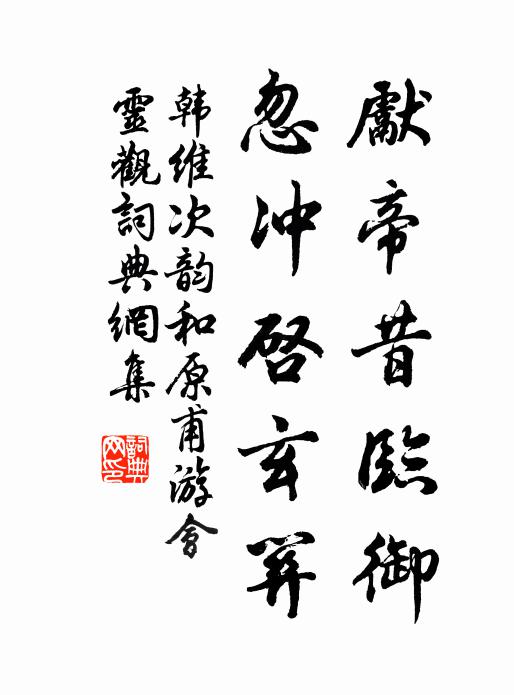 獻帝昔臨御
忽冲啓玄
韩維次韵和原甫游會
靈觀詞典網集
詞典
网印